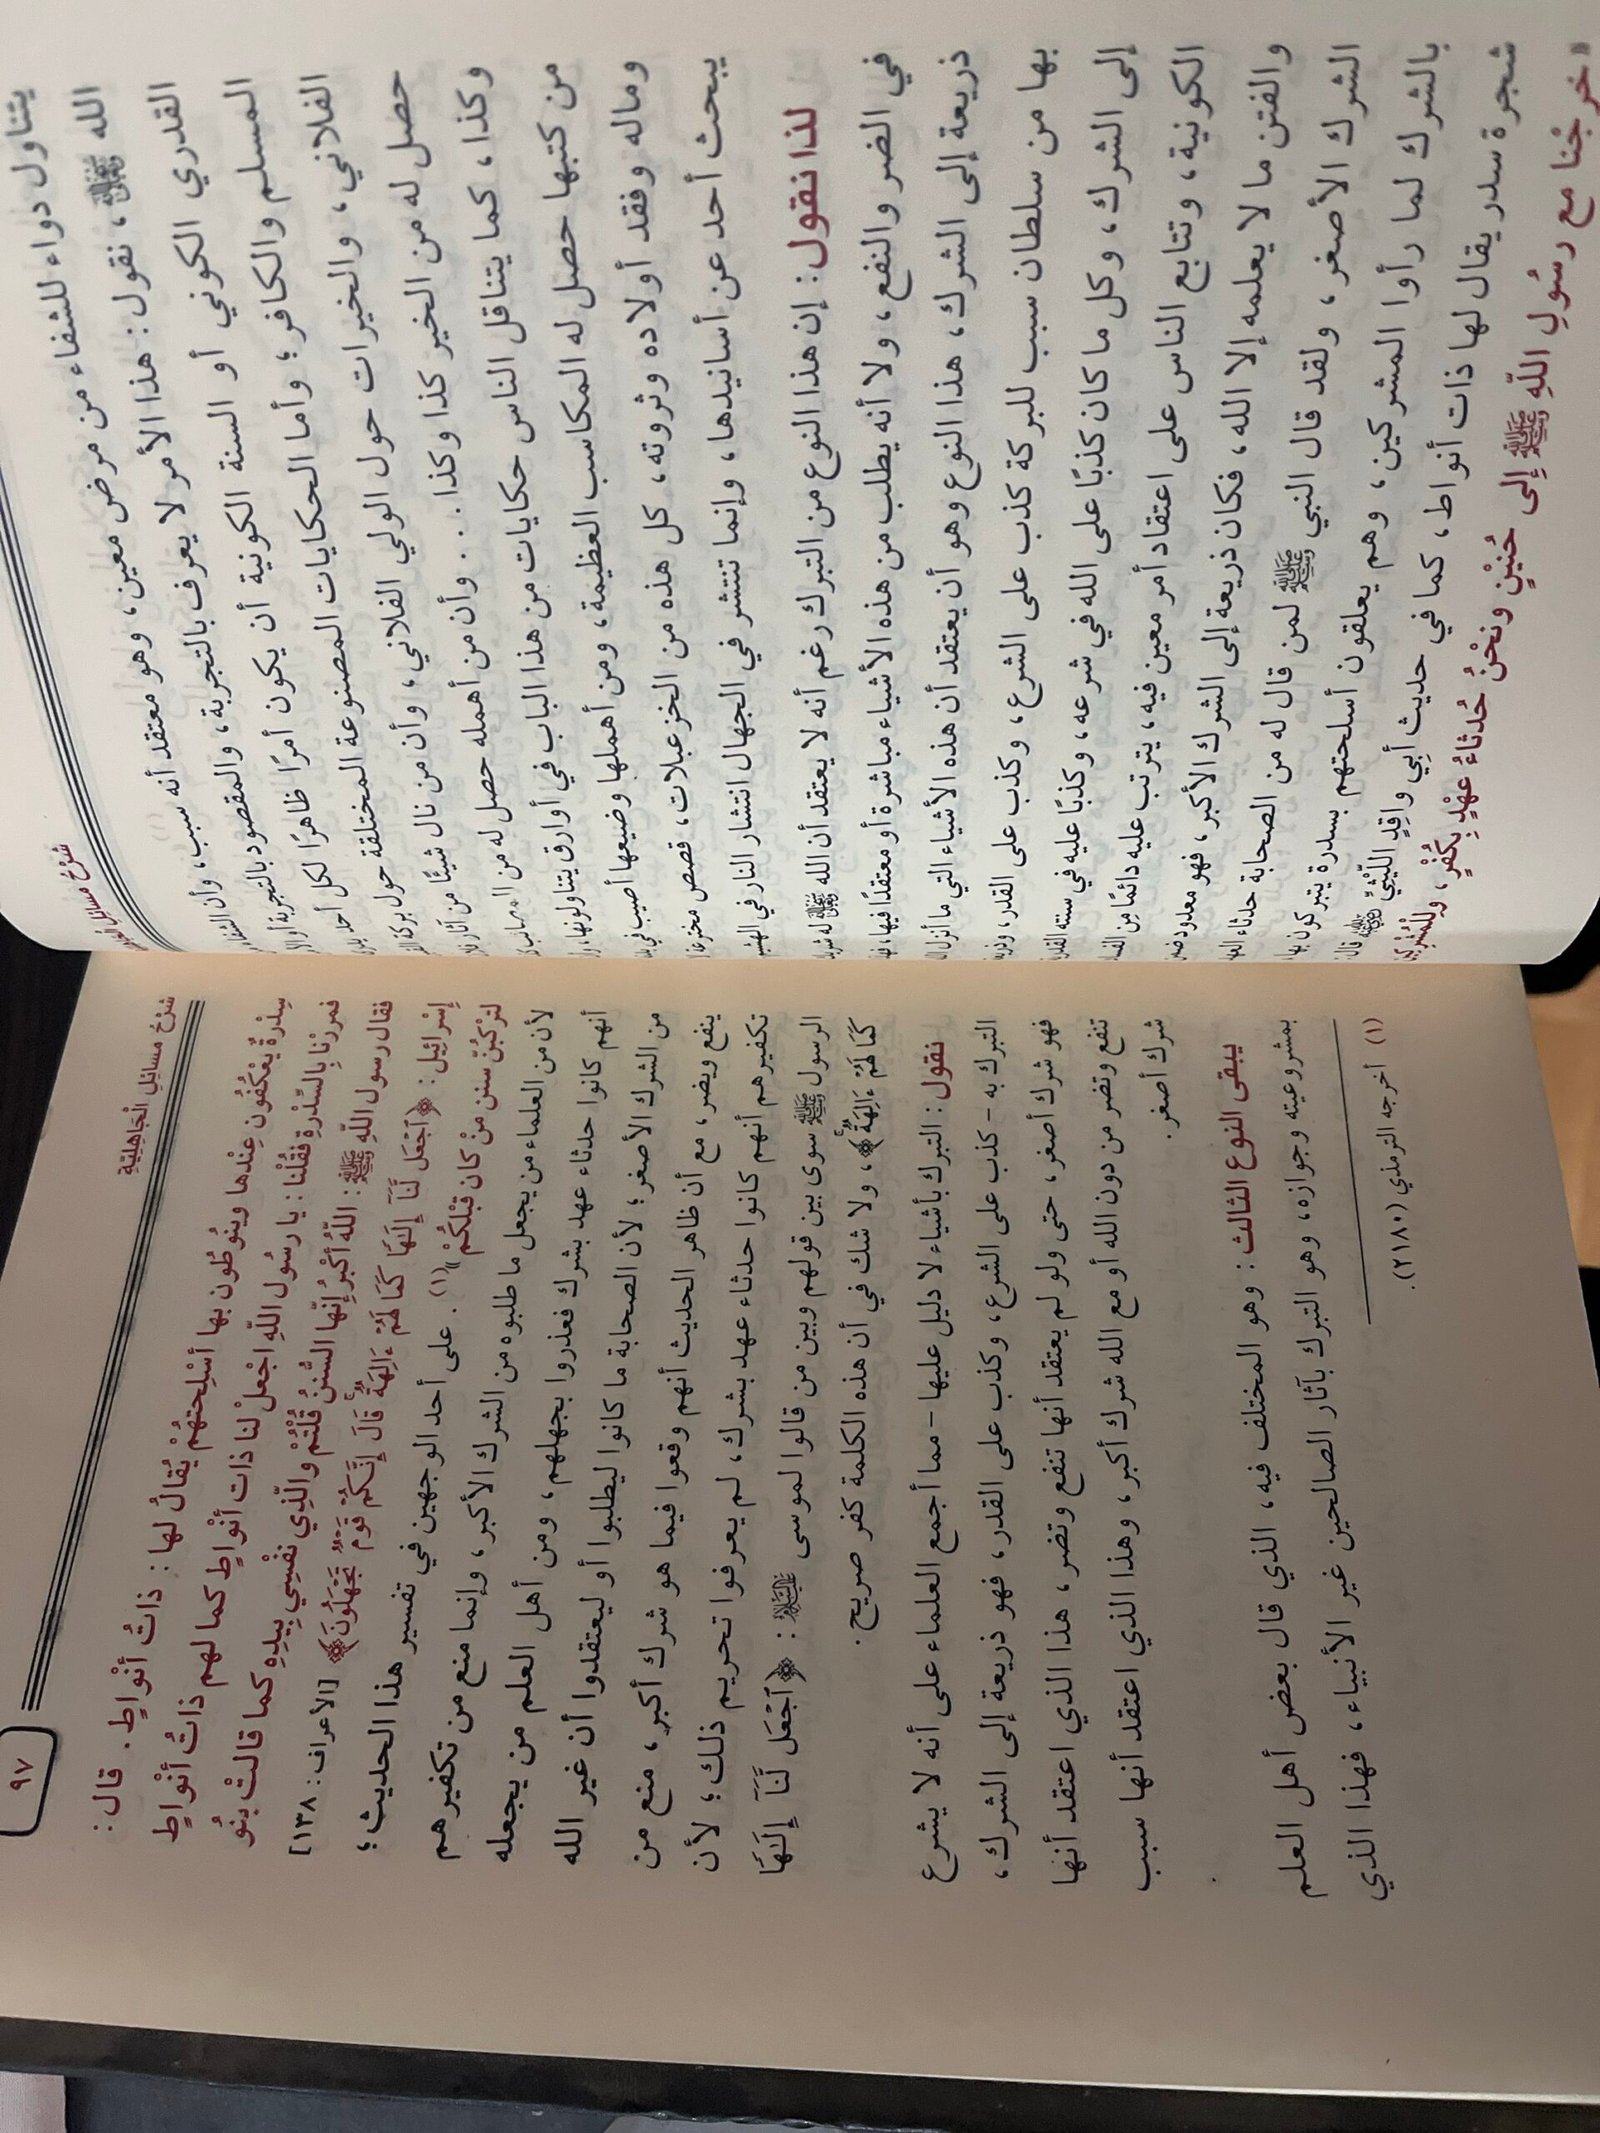 شَرْحُ مَسَائِلِ
يتناول دواء للشفاء من مرض معين، وهو معتقد أنه سبب، وأن الشفاء
الله ﷻ، نقول: هذا الأمر لا يعرف بالتجربة، والمقصود بالتجربة
القدري الكوني أو السنة الكونية أن يكون أمرًا ظاهرًا لكل أحد
المسلم والكافر؛ وأما الحكايات المصنوعة المختلقة حول بركة
الفلاني، والخيرات حول الولي الفلاني، وأن من نال شيئًا من آثار
حصل له من الخير كذا وكذا... وأن من أهمله حصل له من
وكذا، كما يتناقل الناس حكايات من هذا الباب في أوارق يتناولونها،
من كتبها حصل له المكاسب العظيمة، ومن أهملها وضيعها أصيب في
وماله وفقد أولاده وثروته، كل هذه من الخزعبلات، قصص مخترعة
يبحث أحد عن أسانيدها، وإنما تنتشر في الجهال انتشار النار في الهشيم
لذا نقول: إن هذا النوع من التبرك رغم أنه لا يعتقد أن الله ﷻ له
في الضر والنفع، ولا أنه يطلب من هذه الأشياء مباشرة أو معتقدًا فيها،
ذريعة إلى الشرك، هذا النوع وهو أن يعتقد أن هذه الأشياء التي ما أنزل
بها من سلطان سبب للبركة كذب على الشرع، وكذب على القدر،
إلى الشرك، وكل ما كان كذبًا على الله في شرعه، وكذبًا عليه في سننه
الكونية، وتتابع الناس على اعتقاد أمر معين فيه، يترتب عليه دائمًا من
والفتن ما لا يعلمه إلا الله، فكان ذريعة إلى الشرك الأكبر، فهو معدود
الشرك الأصغر، ولقد قال النبي ﷺ لمن قال له من الصحابة حدثاء
بالشرك لما رأوا المشركين، وهم يعلقون أسلحتهم بسدرة يتبركون بها
شجرة سدر يقال لها ذات أنواط، كما في حديث أَبِي واقِدٍ اللَّيْثِيِّ قال:
«خرجْنا مع رسُولِ اللّهِ ﷺ إِلى حُنيْنٍ ونحْنُ حُدثاءُ عهْدٍ بِكُفْرٍ، ولِلْمُشْرِكِينَ
شَرْحُ مَسَائِلِ الْجَاهِلِيَّةِ
٩٧
سِدْرةٌ يعْكُفُون عِنْدها وينُوطُون بها أسْلِحتهُمْ يُقالُ لها: ذاتُ أنْواطٍ. قال:
فمررْنا بِالسِّدْرةِ فقُلْنا: يا رسُول اللّهِ اجْعلْ لنا ذات أنْواطٍ كما لهم ذاتُ أنْواطٍ
فقال رسول اللّهِ ﷺ: اللّهُ أكْبرُ إِنّها السُّننُ قُلْتُمْ والّذِي نفْسِي بِيدِهِ كما قالتْ بنُو
إِسْرائِيل: ﴿ٱجْعَل لَّنَآ إِلَٰهًا كَمَا لَهُمْ ءَالِهَةٌ قَالَ إِنَّكُمْ قَوْمٌ تَجْهَلُونَ﴾ [الأعراف: ١٣٨]
لترْكبُنّ سنن منْ كان قبْلكُمْ»(١). على أحد الوجهين في تفسير هذا الحديث؛
لأن من العلماء من يجعل ما طلبوه من الشرك الأكبر، وإنما منع من تكفيرهم
أنهم كانوا حدثاء عهد بشرك فعذروا بجهلهم، ومن أهل العلم من يجعله
من الشرك الأصغر؛ لأن الصحابة ما كانوا ليطلبوا أو ليعتقدوا أن غير الله
ينفع ويضر، مع أن ظاهر الحديث أنهم وقعوا فيما هو شرك أكبر، منع من
تكفيرهم أنهم كانوا حدثاء عهد بشرك، لم يعرفوا تحريم ذلك؛ لأن
الرسول ﷺ سوى بين قولهم وبين من قالوا لموسى عليه السلام: ﴿ٱجْعَل لَّنَآ إِلَٰهًا
كَمَا لَهُمْ ءَالِهَةٌ﴾، ولا شك في أن هذه الكلمة كفر صريح.
نقول: التبرك بأشياء لا دليل عليها - مما أجمع العلماء على أنه لا يشرع
التبرك به - كذب على الشرع، وكذب على القدر، فهو ذريعة إلى الشرك،
فهو شرك أصغر، حتى ولو لم يعتقد أنها تنفع وتضر، هذا الذي اعتقد أنها
تنفع وتضر من دون الله أو مع الله شرك أكبر، وهذا الذي اعتقد أنها سبب
شرك أصغر.
يبقى النوع الثالث: وهو المختلف فيه، الذي قال بعض أهل العلم
بمشروعيته وجوازه، وهو التبرك بآثار الصالحين غير الأنبياء، فهذا الذي
(١) أخرجه الترمذي (٢١٨٠).